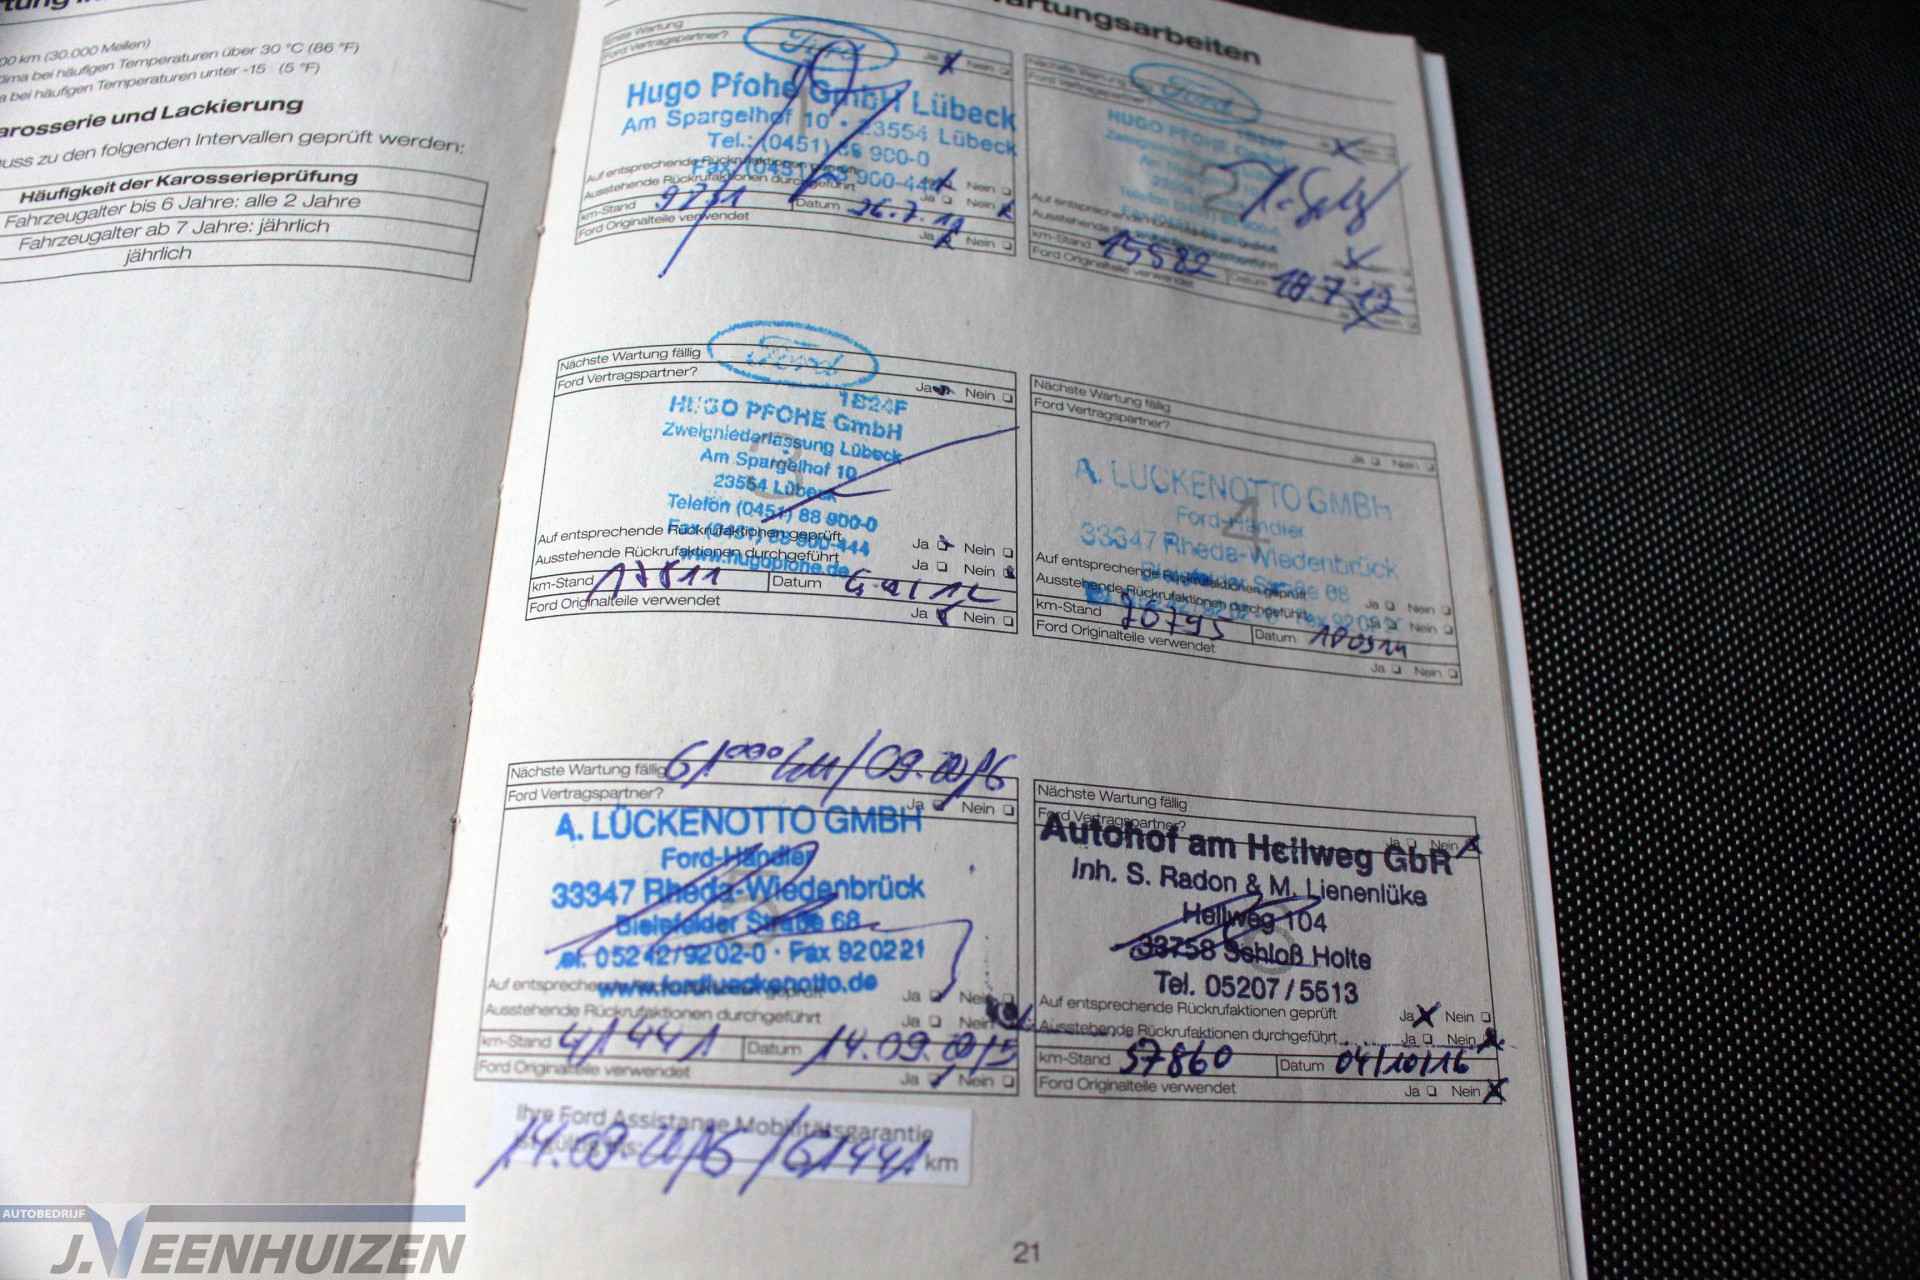 00 km (30.000 Meilen)
bei häufigen Temperaturen über 30 °C (86 °F)
bei häufigen Temperaturen unter -15 (5 °F)
arosserie und Lackierung
uss zu den folgenden Intervallen geprüft werden:
Häufigkeit der Karosserieprüfung
Fahrzeugalter bis 6 Jahre: alle 2 Jahre
Fahrzeugalter ab 7 Jahre: jährlich
jährlich
artungsarbeiten
Erste Wartung
Ford Vertragspartner?
Ja Nein
Ford
Hugo Pfohe GmbH Lübeck
Am Spargelhof 10 • 23554 Lübeck
Tel.: (0451) 88 900-0
Fax (0451) 88 900-444
1
Auf entsprechende Rückrufaktionen geprüft
Ja Nein
Ausstehende Rückrufaktionen durchgeführt
Ja Nein
km-Stand 9731 Datum 26.7.11
Ford Originalteile verwendet
Ja Nein
Nächste Wartung fällig
Ford Vertragspartner?
Ford
HUGO PFOHE GmbH
2
km-Stand 15582 Datum 18.7.12
Ford Originalteile verwendet
Nächste Wartung fällig
Ford Vertragspartner?
Ja Nein
Ford
1824F
HUGO PFOHE GmbH
Zweigniederlassung Lübeck
Am Spargelhof 10
23554 Lübeck
Telefon (0451) 88 900-0
Fax (0451) 88 900-444
www.hugopfohe.de
3
Auf entsprechende Rückrufaktionen geprüft
Ja Nein
Ausstehende Rückrufaktionen durchgeführt
Ja Nein
km-Stand Datum
Ford Originalteile verwendet
Ja Nein
Nächste Wartung fällig
Ford Vertragspartner?
Ja Nein
A. LÜCKENOTTO GMBH
Ford-Händler
33347 Rheda-Wiedenbrück
Bielefelder Straße 68
4
Auf entsprechende Rückrufaktionen geprüft
Ja Nein
Ausstehende Rückrufaktionen durchgeführt
Ja Nein
km-Stand Datum
Ford Originalteile verwendet
Ja Nein
Nächste Wartung fällig 61000 km/09.2016
Ford Vertragspartner?
Ja Nein
A. LÜCKENOTTO GMBH
Ford-Händler
33347 Rheda-Wiedenbrück
Bielefelder Straße 68
el. 05242/9202-0 · Fax 920221
www.fordlueckenotto.de
5
Auf entsprechende Rückrufaktionen geprüft
Ja Nein
Ausstehende Rückrufaktionen durchgeführt
Ja Nein
km-Stand 41441 Datum 14.09.2015
Ford Originalteile verwendet
Ja Nein
Ihre Ford Assistance Mobilitätsgarantie
14.09.2016/61441 km
Nächste Wartung fällig
Ford Vertragspartner?
Ja Nein
Autohof am Heilweg GbR
Inh. S. Radon & M. Lienenlüke
Hellweg 104
33758 Schloß Holte
Tel. 05207/5513
6
Auf entsprechende Rückrufaktionen geprüft
Ja Nein
Ausstehende Rückrufaktionen durchgeführt
Ja Nein
km-Stand 57860 Datum 04/10/16
Ford Originalteile verwendet
Ja Nein
21
AUTOBEDRIJF
J.VEENHUIZEN